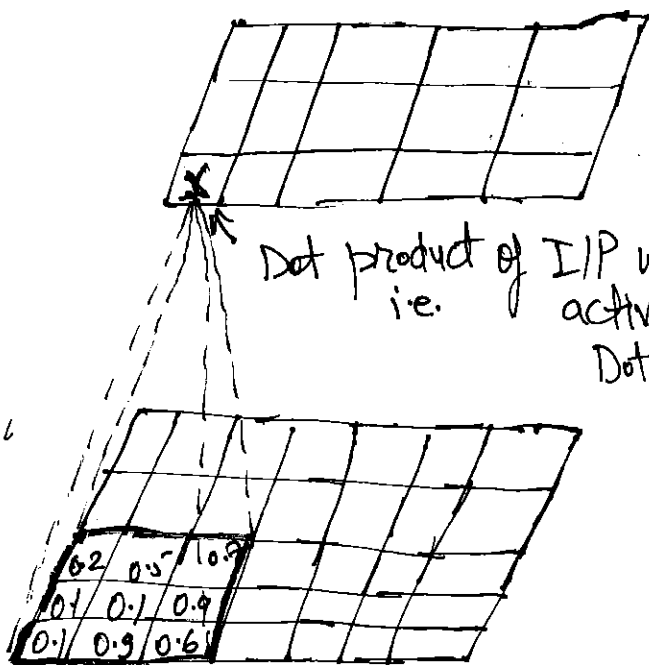 X
Dot product of I/P
i.e. activ
Dot
0.2 0.5
0.1 0.1 0.9
0.1 0.9 0.6